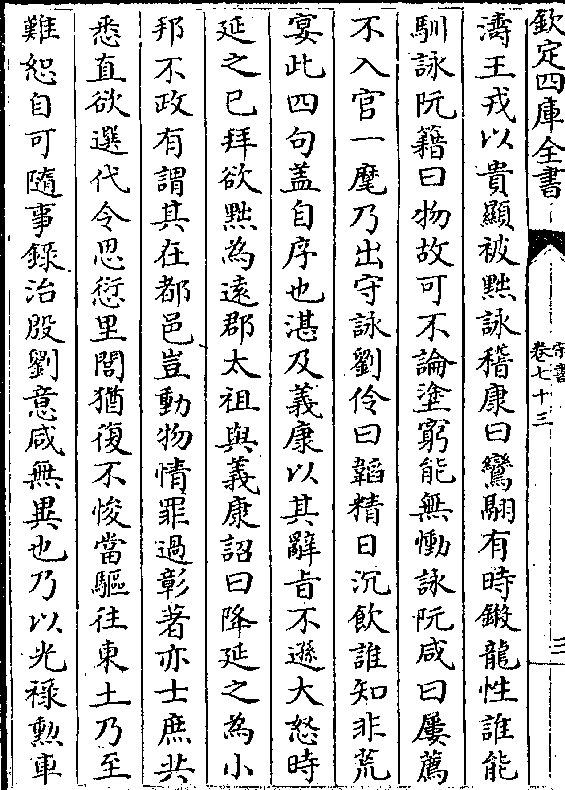 欽定四庫全書
宋書
卷七十三
三
濤王戎以貴顯被黜詠嵇康曰鸞翮有時鎩龍性誰能
馴詠阮籍曰物故可不論塗窮能無慟詠阮咸曰屢薦
不入官一麾乃出守詠劉伶曰韜精日沉飲誰知非荒
宴此四句盖自序也湛及義康以其辭旨不遜大怒時
延之已拜欲黜為遠郡太祖與義康詔曰降延之為小
邦不政有謂其在都邑豈動物情罪過彰著亦士庶共
悉直欲選代令思愆里閭猶復不悛當驅往東土乃至
難恕自可隨事錄治殷劉意咸無異也乃以光祿勲車